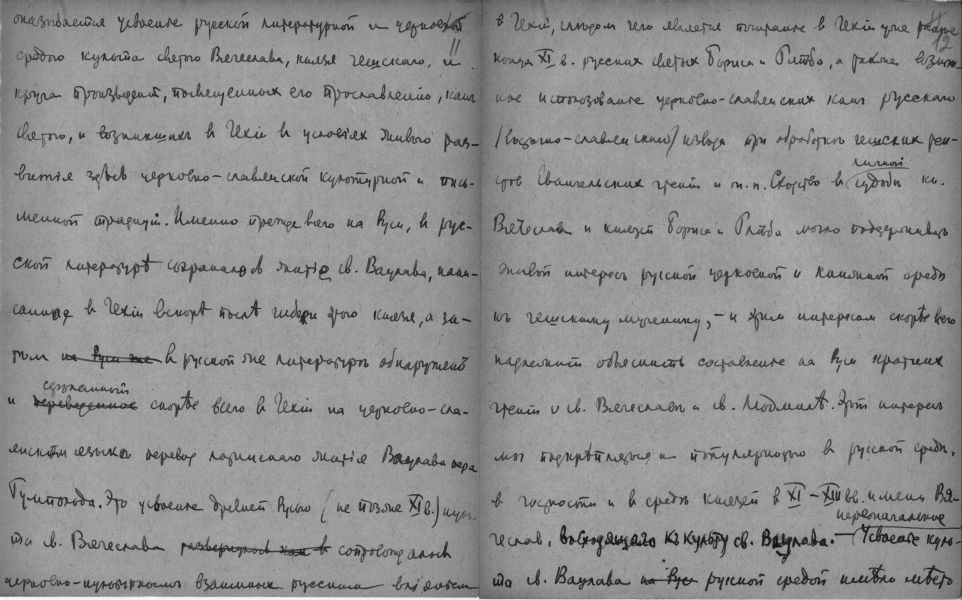 оказывается усвоение русской литературной и церковной
средою культа святого Вячеслава, князя чешскаго, и
круга произведений, посвященных его прославленію, какъ
святого, и возникшихъ в Чехіи в условіях живого раз-
витія здѣсь церковно-славянской культурной и пись-
менной традиціи. Именно прежде всего на Руси, в рус-
ской литературѣ сохранилось житіе св. Вацлава, напи-
санное в Чехіи вскорѣ послѣ гибели этого князя, а за-
тѣм на Руси же в русской же литературѣ обнаруженъ
сдѣланный
и переведенное скорѣе всего в Чехіи на церковно-сла-
вянскій языкъ перевод латинскаго житія Вацлава пера
Гумпольда. Это усвоение древней Русью (не позже XI в.) куль-
та св. Вячеслава развернулось как в сопровождалось
церковно-культурным взаимным русским вліяніем
12
в Чехіи, слѣдом чего является почитание в Чехіи уже ранѣе
конца XI в. русских святых Бориса и Глѣба, а также возмож-
ное использование церковно-славянских книг русскаго
/восточно-славянскаго/ извода при обработкѣ чешских тек-
стов Евангельских чтеній и т.п. Сходство в судьбы кн.
личной
Вячеслава и князей Бориса и Глѣба могло поддерживать
живой интерес русской церковной и книжной среды
къ чешскому мученику, – и этим интересам скорѣе всего
надлежит объяснить составление на Руси кратких
чтеній о св. Вячеславѣ и св. Людмилѣ. Этот интерес
мог подкрѣпляться и популярностью в русской средѣ,
в частности и в средѣ князей в XI–XIII вв. имени Вя-
первоначальное
чеслав, восходящаго къ культу св. Вацлава. – Усвоение куль-
та св. Вацлава на Руси русской средой имѣло мѣсто